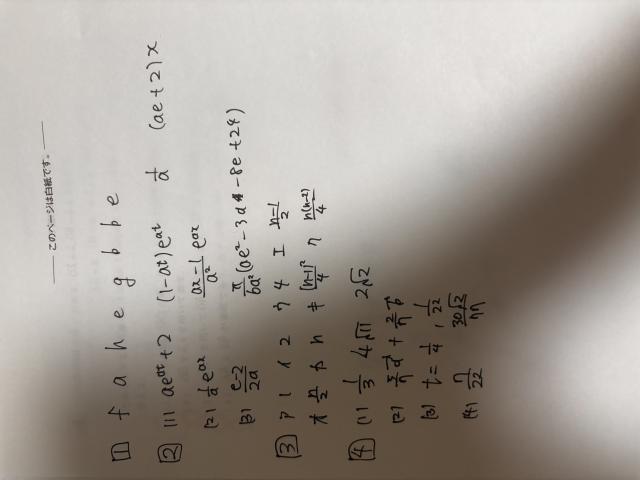 このページは白紙です。
1 f a h e g b b e
2 (1) ae^{at}+2 (1-at)e^{at} 1/a (ae+2)x
(2) 1/a e^{ax} (ax-1)/a² e^{ax}
(3) (e-2)/2a π/6a² (ae²-3a-8e+24)
3 ア 1 イ 2 ウ 4 エ (n-1)/2
オ n/2 カ n キ (n-1)²/4 ク n(n-2)/4
4 (1) 1/3 4√11 2√2
(2) + 2/7 b
(3) t= 1/4, 1/22
(4) 7/22 30√2/77